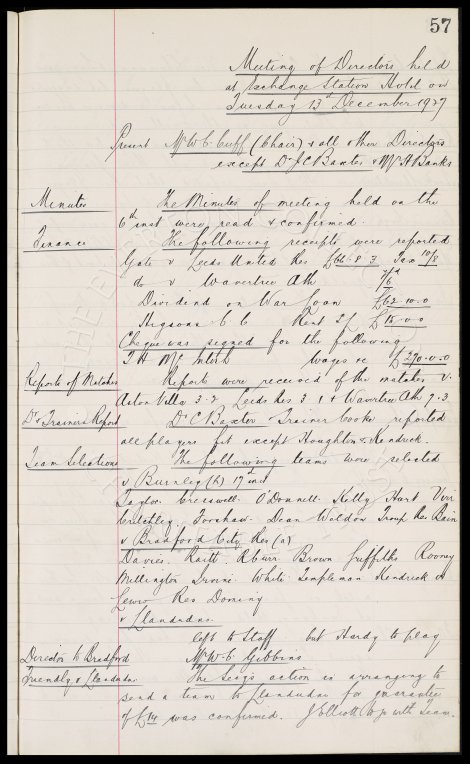 57
Meeting of Directors held
at Exchange Station Hotel on
Tuesday 13th December 1927
Present Mr W. C. Cuff (Chair) & all other Directors
except Dr J C Baxter & Mr H Banks
Minutes The Minutes of meeting held on the
6th inst were read & confirmed.
Finance The following receipts were reported
Gate v Leeds United Res £66. 8. 3 Tax 10/8
do v Wavertree Ath 7/6
Dividend on War Loan £62. 10. 0
Higsons C C Rent £15. 0. 0
Cheque was signed for the following
T H McIntosh Wages &c £290. 0. 0
Reports of Matches Reports were received of the matches v.
Aston Villa 3. 2 Leeds Res 3. 1 & Wavertree Ath 7. 3
Dr & Trainers Report Dr C Baxter Trainer Cooke reported
all players fit except Houghton & Kendrick.
Team Selections The following teams were selected
v Burnley (h) 17th inst
Taylor Cresswell O'Donnell Kelly Hart Virr
Critchley Forshaw Dean Weldon Troup Res Bain
v Bradford City Res (a)
Davies Raitt Kerr Brown Griffiths Rooney
Millington Irvine White Templeman Kendrick or
Lewis Res Dominy
v Llandudno
left to Staff but Hardy to play
Director to Bradford Mr W. C. Gibbins
Friendly v Llandudno The Secy's action in arranging to
send a team to Llandudno for guarantee
of £14 was confirmed. J Elliott to go with Team.